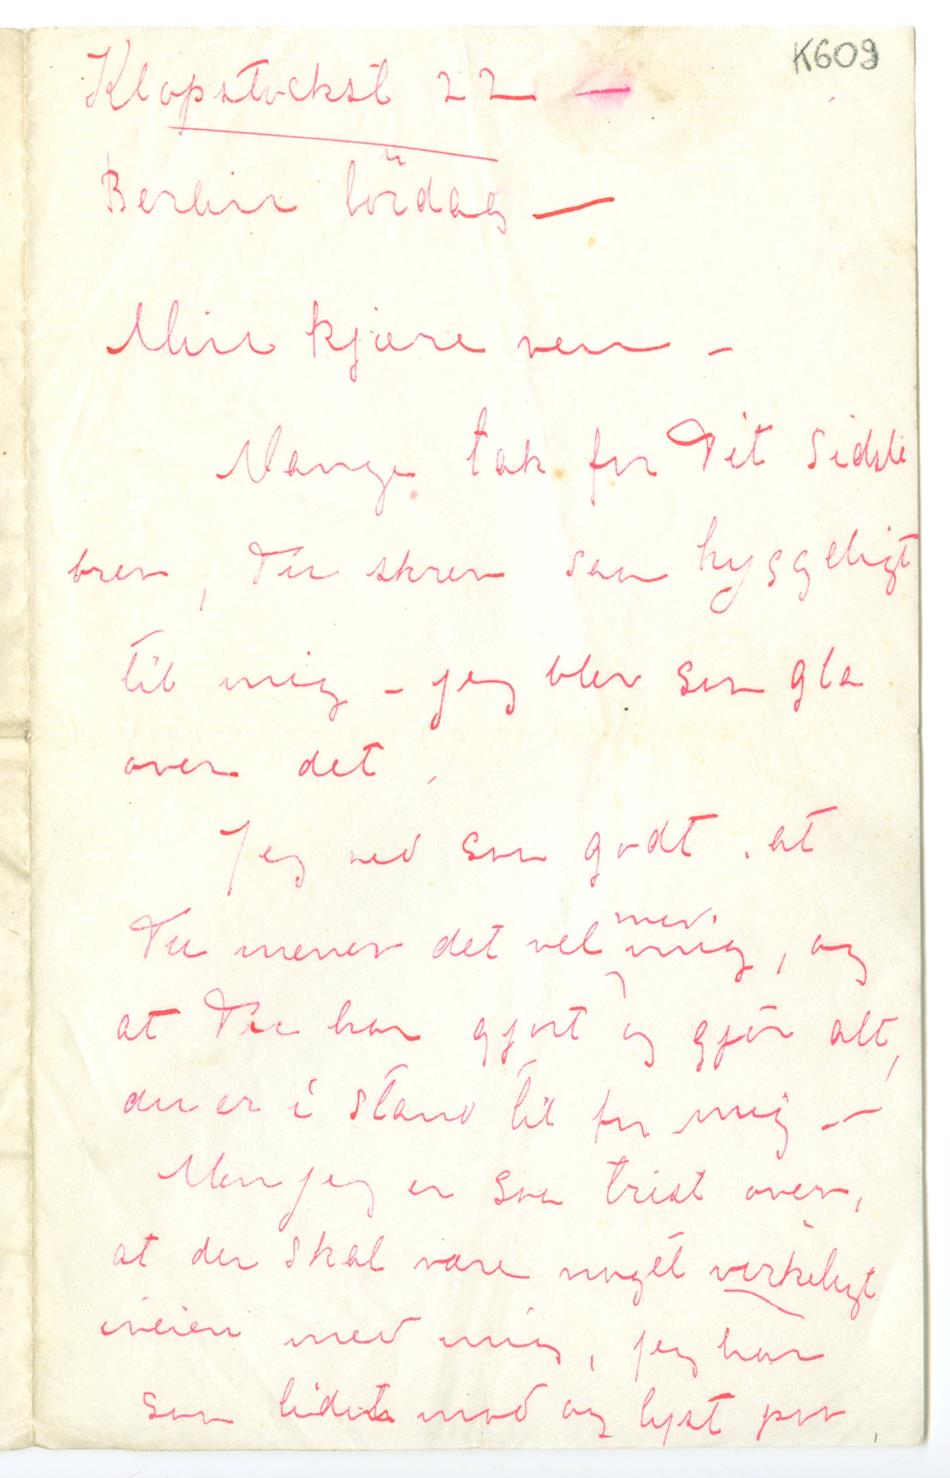 K609
Klopstockst 22 —
Berlin lördag —
Min kjære ven –
Mange tak for Dit sidste
brev, Du skrev saa hyggeligt
til mig – jeg blev saa gla
over det.
Jeg ved saa godt, at
Du mener det vel med mig, og
at Du har gjort og gjør alt,
du er i stand til for mig –
Men jeg er saa trist over,
at der skal være noget virkeligt
iveien med mig, jeg har
saa lidet mod og lyst paa